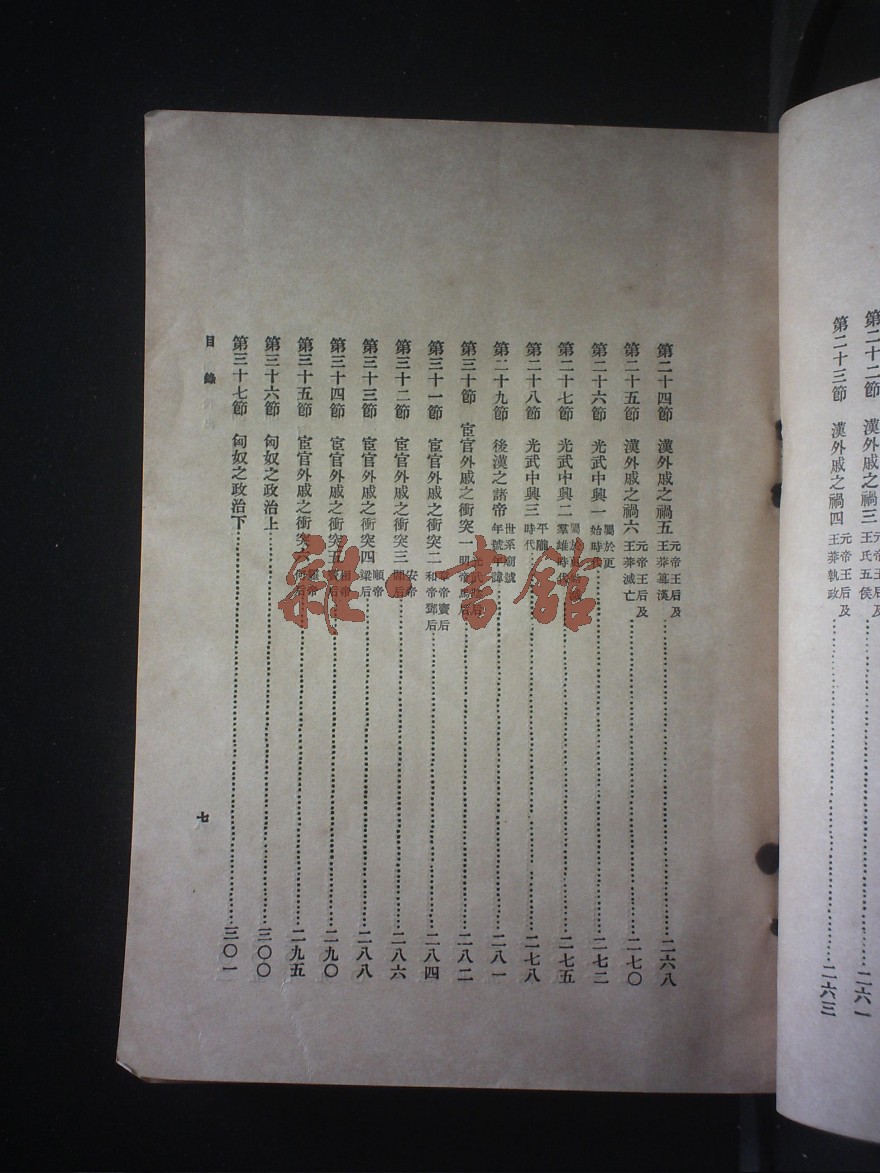 第二十二節 漢外戚之禍三 元帝王后及王氏五侯……二六一
第二十三節 漢外戚之禍四 元帝王后及王莽執政……二六三
第二十四節 漢外戚之禍五 元帝王后及王莽篡漢……二六八
第二十五節 漢外戚之禍六 元帝王后及王莽滅亡……二七〇
第二十六節 光武中興一 屬於更始時代……二七二
第二十七節 光武中興二 羣雄時代……二七五
第二十八節 光武中興三 平隴蜀時代……二七八
第二十九節 後漢之諸帝 世系廟號年號年諱……二八一
第三十節 宦官外戚之衝突一 明帝馬后……二八二
第三十一節 宦官外戚之衝突二 章帝竇后和帝鄧后……二八四
第三十二節 宦官外戚之衝突三 安帝閻后……二八六
第三十三節 宦官外戚之衝突四 順帝梁后……二八八
第三十四節 宦官外戚之衝突五 桓帝竇后……二九〇
第三十五節 宦官外戚之衝突六 靈帝何后……二九五
第三十六節 匈奴之政治上……三〇〇
第三十七節 匈奴之政治下……三〇一
目錄
七
雜·書館